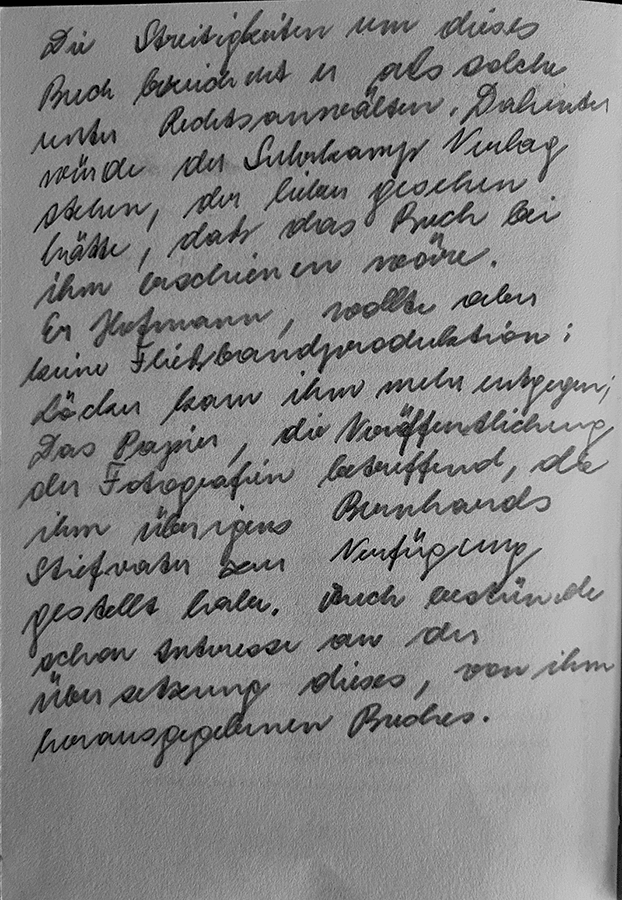 Die Streitigkeiten um dieses
Buch bezeichnet er als solche
unter Rechtsanwälten. Dahinter
würde der Suhrkamp Verlag
stehen, der lieber gesehen
hätte, daß das Buch bei
ihm erschienen wäre.
Er Hofmann, wollte aber
keine Fließbandproduktion:
Löcker kam ihm mehr entgegen;
Das Papier, die Veröffentlichung
der Fotografien betreffend, die
ihm übrigens Bernhards
Stiefvater zur Verfügung
gestellt habe. Auch bestünde
schon Interesse an der
Übersetzung dieses, von ihm
herausgegebenen Buches.